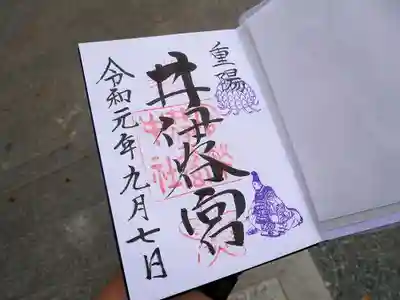 重陽
井伊谷宮
令和元年九月七日